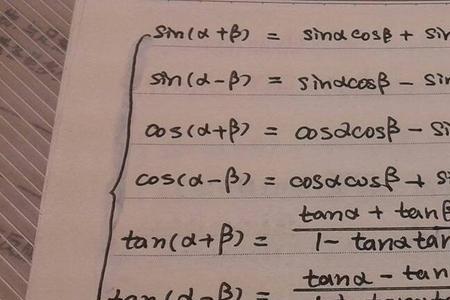 sin(α+β) = sinαcosβ + sin
sin(α-β) = sinαcosβ - sin
cos(α+β) = cosαcosβ - si
cos(α-β) = cosαcosβ + s
tan(α+β) = tanα + tanβ / 1 - tanαtan
tan(α-β) = tanα - tan